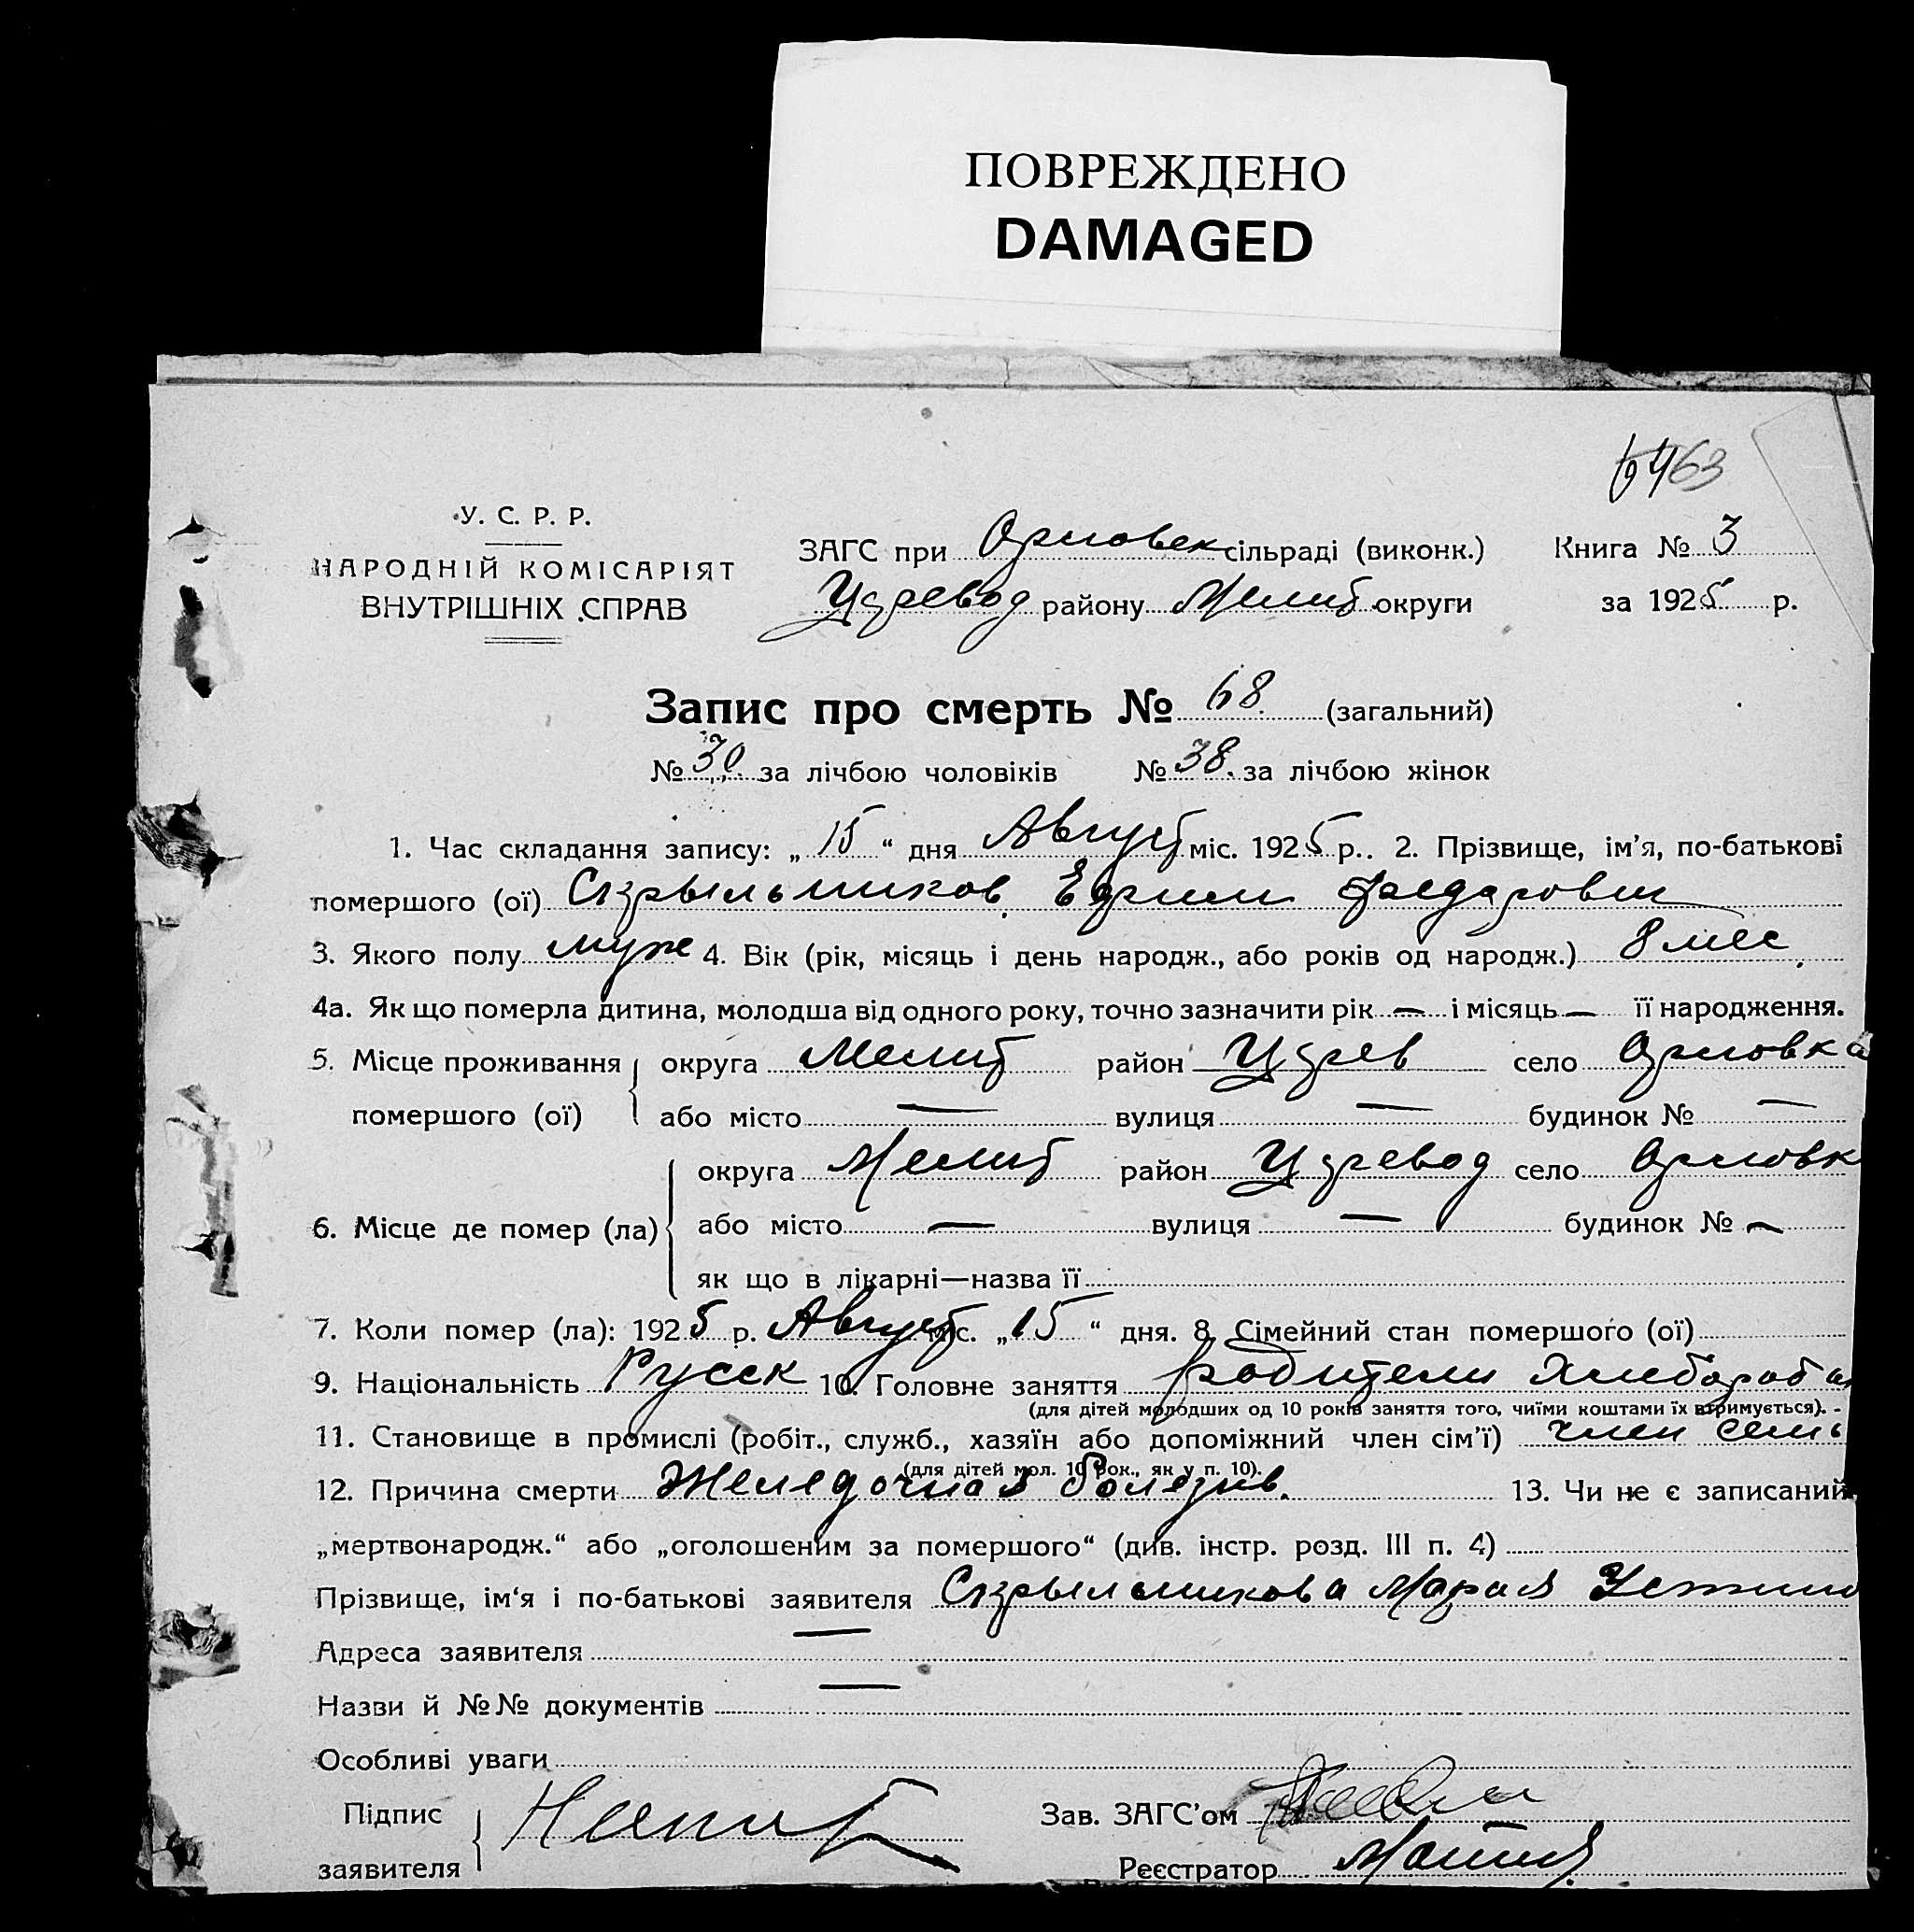 ПОВРЕЖДЕНО
DAMAGED
63
У. С. Р. Р.
НАРОДНІЙ КОМІСАРІЯТ
ВНУТРІШНІХ СПРАВ
ЗАГС при Орловск сільраді (виконк.)
району Мелит округи
Книга № 3
за 1925 р.
Запис про смерть № 68. (загальний)
№ 30. за лічбою чоловіків № 38. за лічбою жінок
1. Час складання запису: „ 15 “ дня Август міс. 1925 р.. 2. Прізвище, ім’я, по-батькові
помершого (ої) Ефим
3. Якого полу муж 4. Вік (рік, місяць і день народж., або років од народж.) 8 мес.
4а. Як що померла дитина, молодша від одного року, точно зазначити рік — і місяць — її народження.
5. Місце проживання помершого (ої) округа Мелит район село Орловка
або місто — вулиця — будинок № —
6. Місце де помер (ла) округа Мелит район село Орловк
або місто — вулиця — будинок № —
як що в лікарні—назва її
7. Коли помер (ла): 1925 р. Август міс. „ 15 “ дня. 8. Сімейний стан помершого (ої)
9. Національність Русск 10. Головне заняття родители Хлибороб
(для дітей молодших од 10 років заняття того, чиїми коштами їх втримується). -
11. Становище в промислі (робіт., служб., хазяїн або допоміжний член сім’ї) член семь
(для дітей мол. 10 рок., як у п. 10).
12. Причина смерти Желедочная болезнь. 13. Чи не є записаний
„мертвонародж.“ або „оголошеним за помершого“ (див. інстр. розд. III п. 4)
Прізвище, ім‘я і по-батькові заявителя Мария Устино
Адреса заявителя —
Назви й №№ документів —
Особливі уваги
Підпис
заявителя
Зав. ЗАГС’ом
Реєстратор